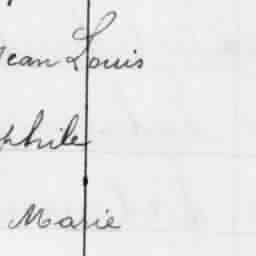 Jean Louis
phile
Marie